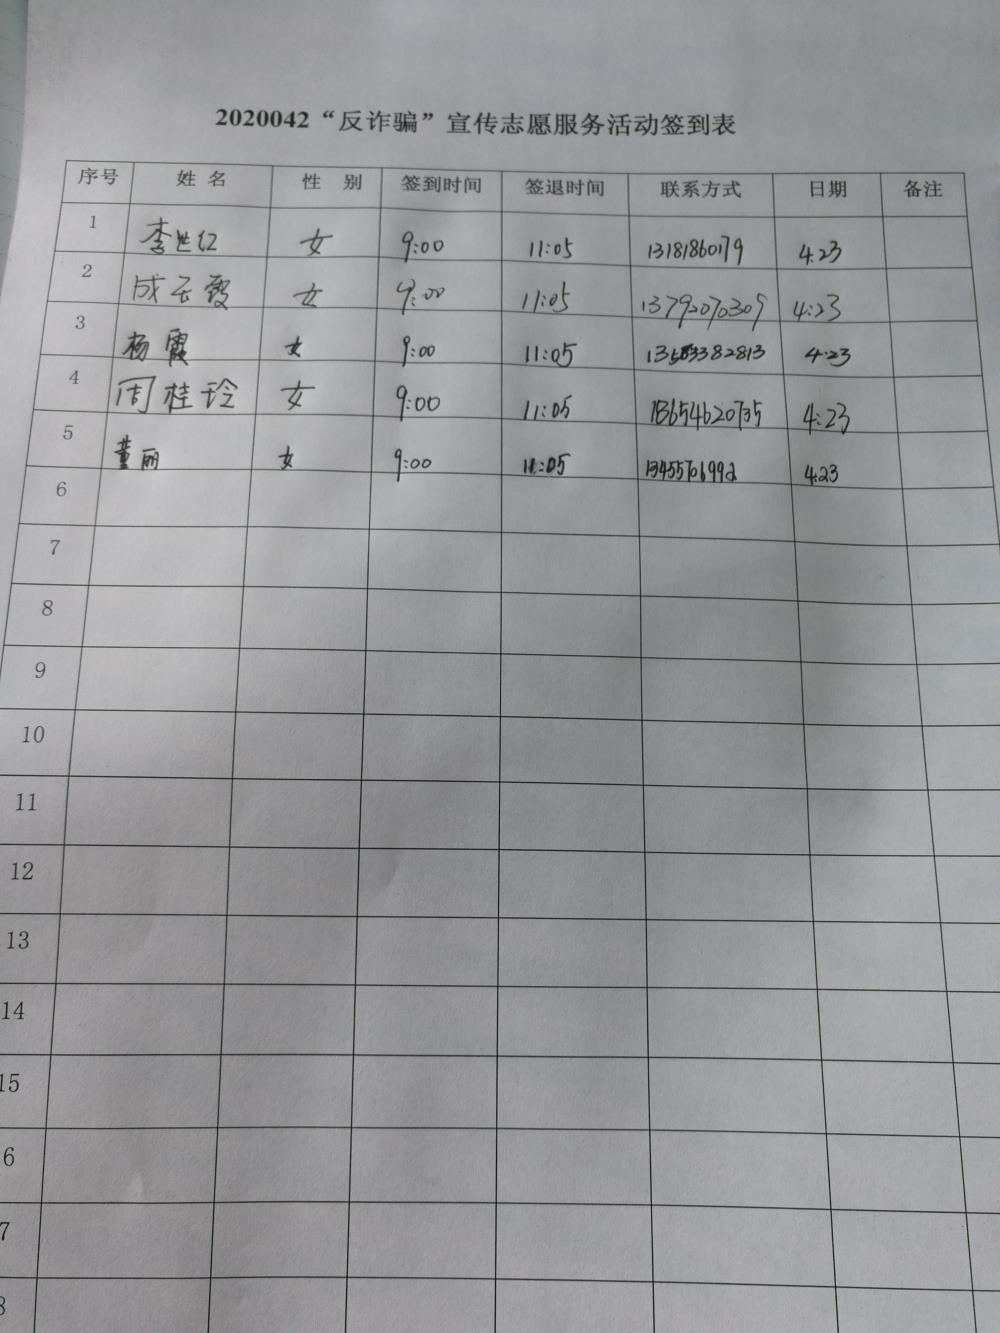 2020042“反诈骗”宣传志愿服务活动签到表
序号 姓 名 性 别 签到时间 签退时间 联系方式 日期 备注
1 李世红 女 9:00 11:05 13181860179 4:23
2 成云霞 女 9:00 11:05 13792070309 4:23
3 杨霞 女 9:00 11:05 13583382813 4:23
4 周桂玲 女 9:00 11:05 4:23
5 董丽 女 9:00 11:05 4:23
6
7
8
9
10
11
12
13
14
15
6
7
8